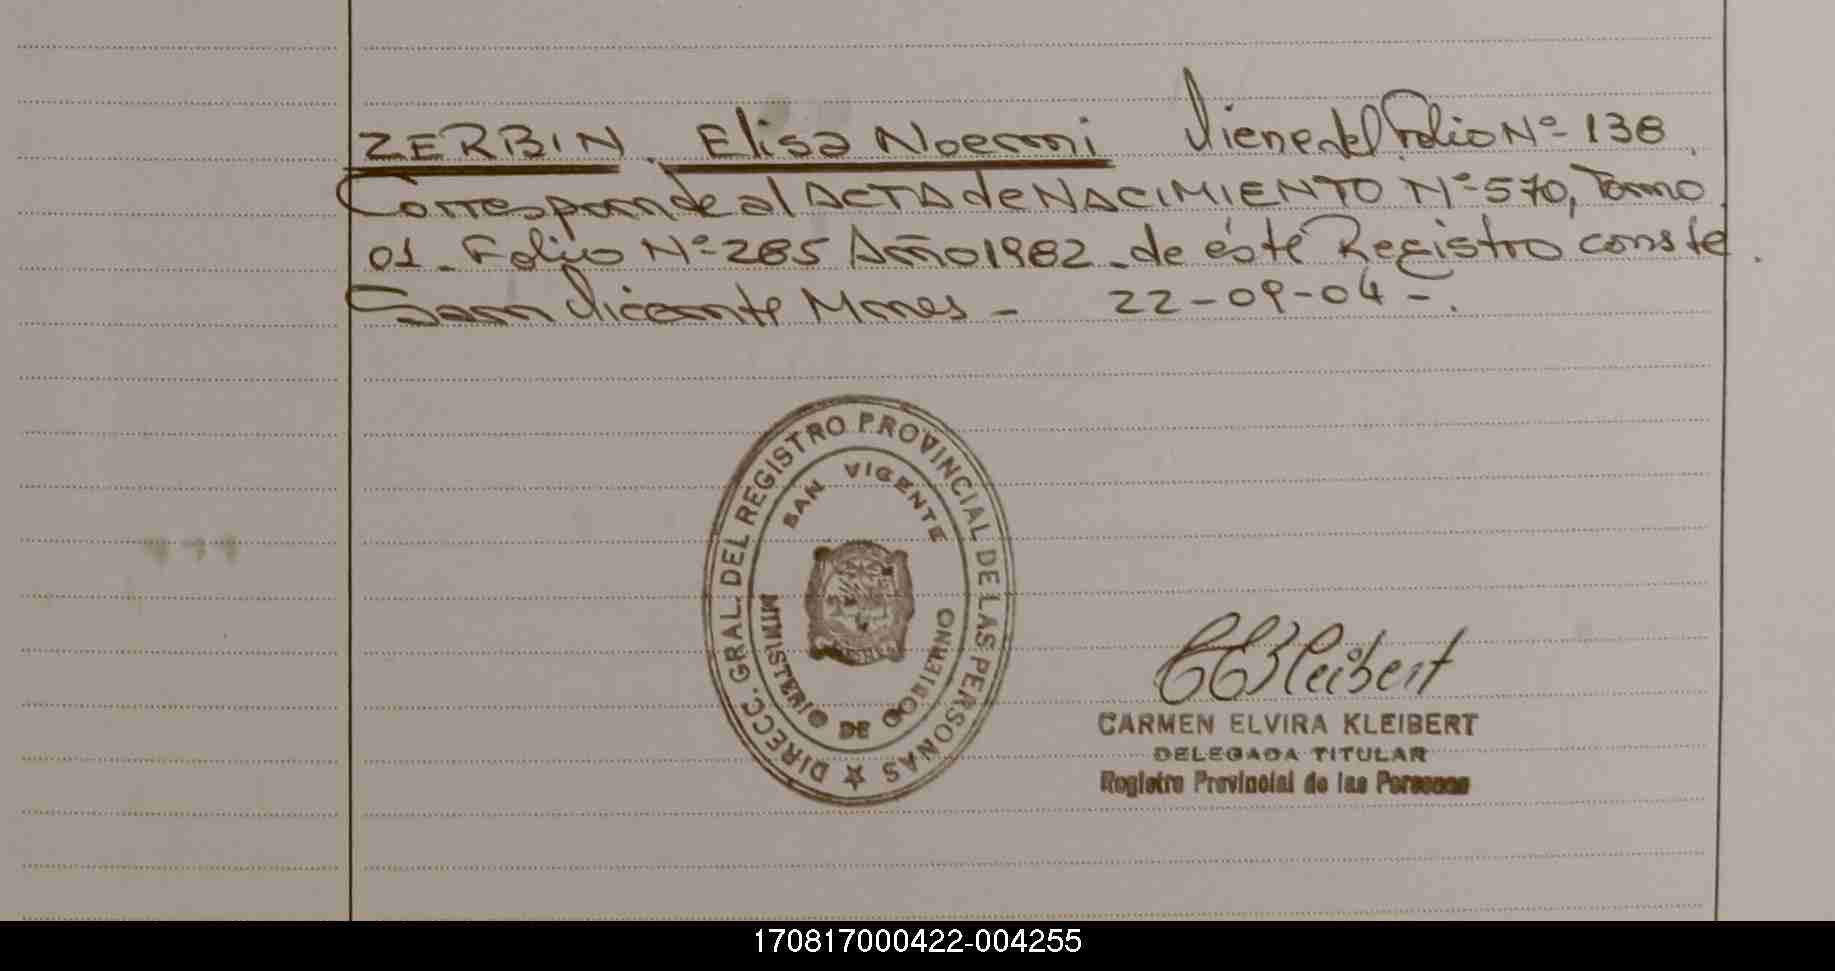 ZERBIN, Elisa Noemi Viene del Folio Nº 138.
Corresponde al ACTA de NACIMIENTO Nº 570, Tomo
01 - Folio Nº 285 Año 1982 - de éste Registro conste.
San Vicente Mnes - 22-09-04 -.
DIRECC. GRAL. DEL REGISTRO PROVINCIAL DE LAS PERSONAS
SAN VICENTE
MINISTERIO DE GOBIERNO
CCKleibert
CARMEN ELVIRA KLEIBERT
DELEGADA TITULAR
Registro Provincial de las Personas
170817000422-004255